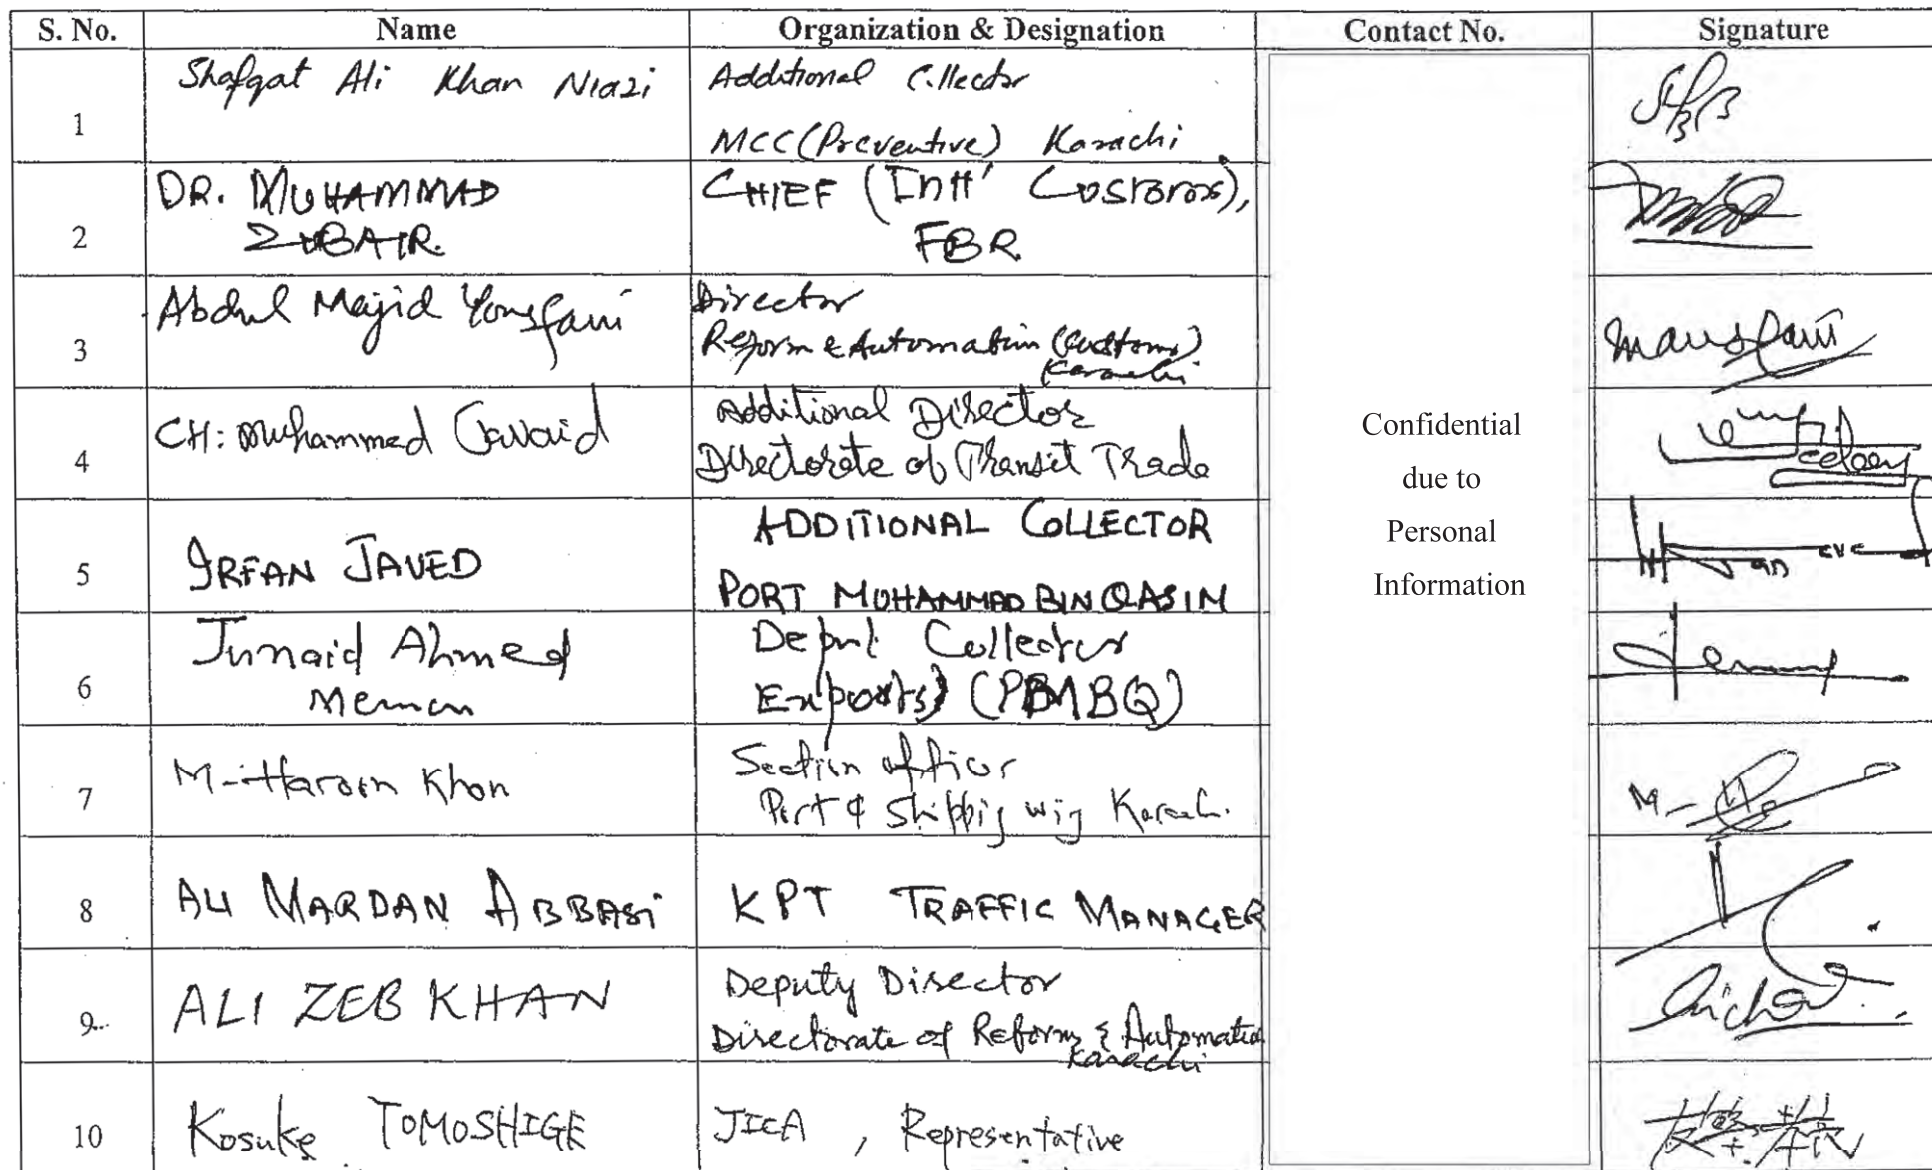 S. No. Name Organization & Designation Contact No. Signature
1 Shafqat Ali Khan Niazi Additional Collector
MCC (Preventive) Karachi
2 DR. MUHAMMAD ZUBAIR. CHIEF (Int'l Customs),
FBR
3 Abdul Majid Yousfani Director
Reform & Automation (Customs)
Karachi
4 CH: Muhammad Javaid Additional Director
Directorate of Transit Trade
5 IRFAN JAVED ADDITIONAL COLLECTOR
PORT MUHAMMAD BIN QASIM
6 Junaid Ahmed
Memon
Collector
Exports) (PBMBQ)
7 M-Haroon Khan Section officer
Port & Shippig wig Karachi.
8 ALI MARDAN ABBASI KPT TRAFFIC MANAGER
9 ALI ZEB KHAN Deputy Director
Directorate of Reform & Automation
Karachi
10 Kosuke TOMOSHIGE JICA , Representative
Confidential
due to
Personal
Information